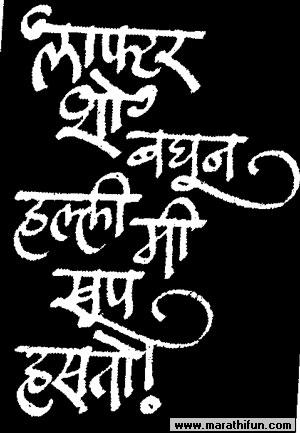 लाफ्टर
शो
बघून
हल्ली मी
खूप
हसतो!
www.marathifun.com